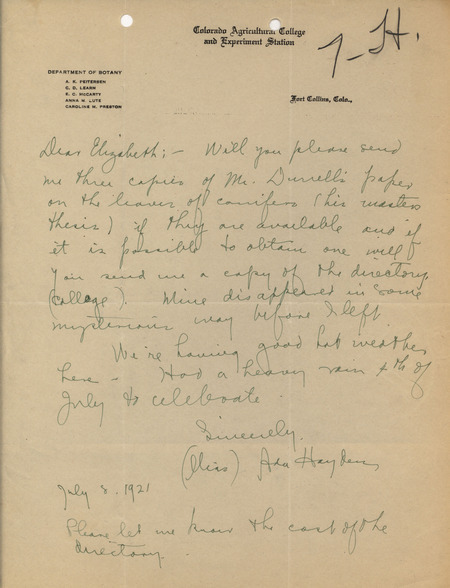 Colorado Agricultural College
and Experiment Station
7-H.
DEPARTMENT OF BOTANY
A. K. PEITERSEN
C. D. LEARN
E. C. McCARTY
ANNA M. LUTE
CAROLINE M. PRESTON
Fort Collins, Colo.,
Dear Elizabeth: - Will you please send
me three copies of Mr. Durrell's paper
on the leaves of conifers (his masters
thesis) if they are available and if
it is possible to obtain one will
you send me a copy of the directory
(college). Mine disappeared in some
mysterious way before I left.
We're having good hot weather
here - Had a heavy rain 4th of
July to celebrate.
Sincerely,
(Miss) Ada Hayden
July 8. 1921
Please let me know the cost of the
directory.